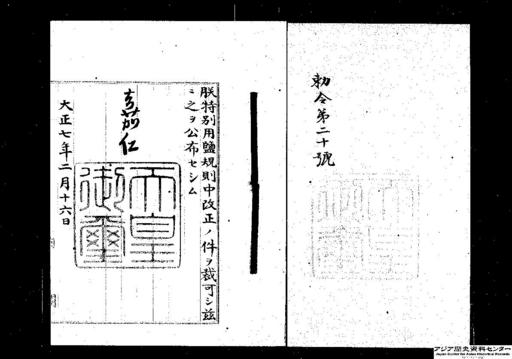 勅令第二十號
朕特別用鹽規則中改正ノ件ヲ裁可シ茲
ニ之ヲ公布セシム
嘉仁
天皇
御璽
大正七年二月十六日
アジア歴史資料センター
Japan Center for Asian Historical Records